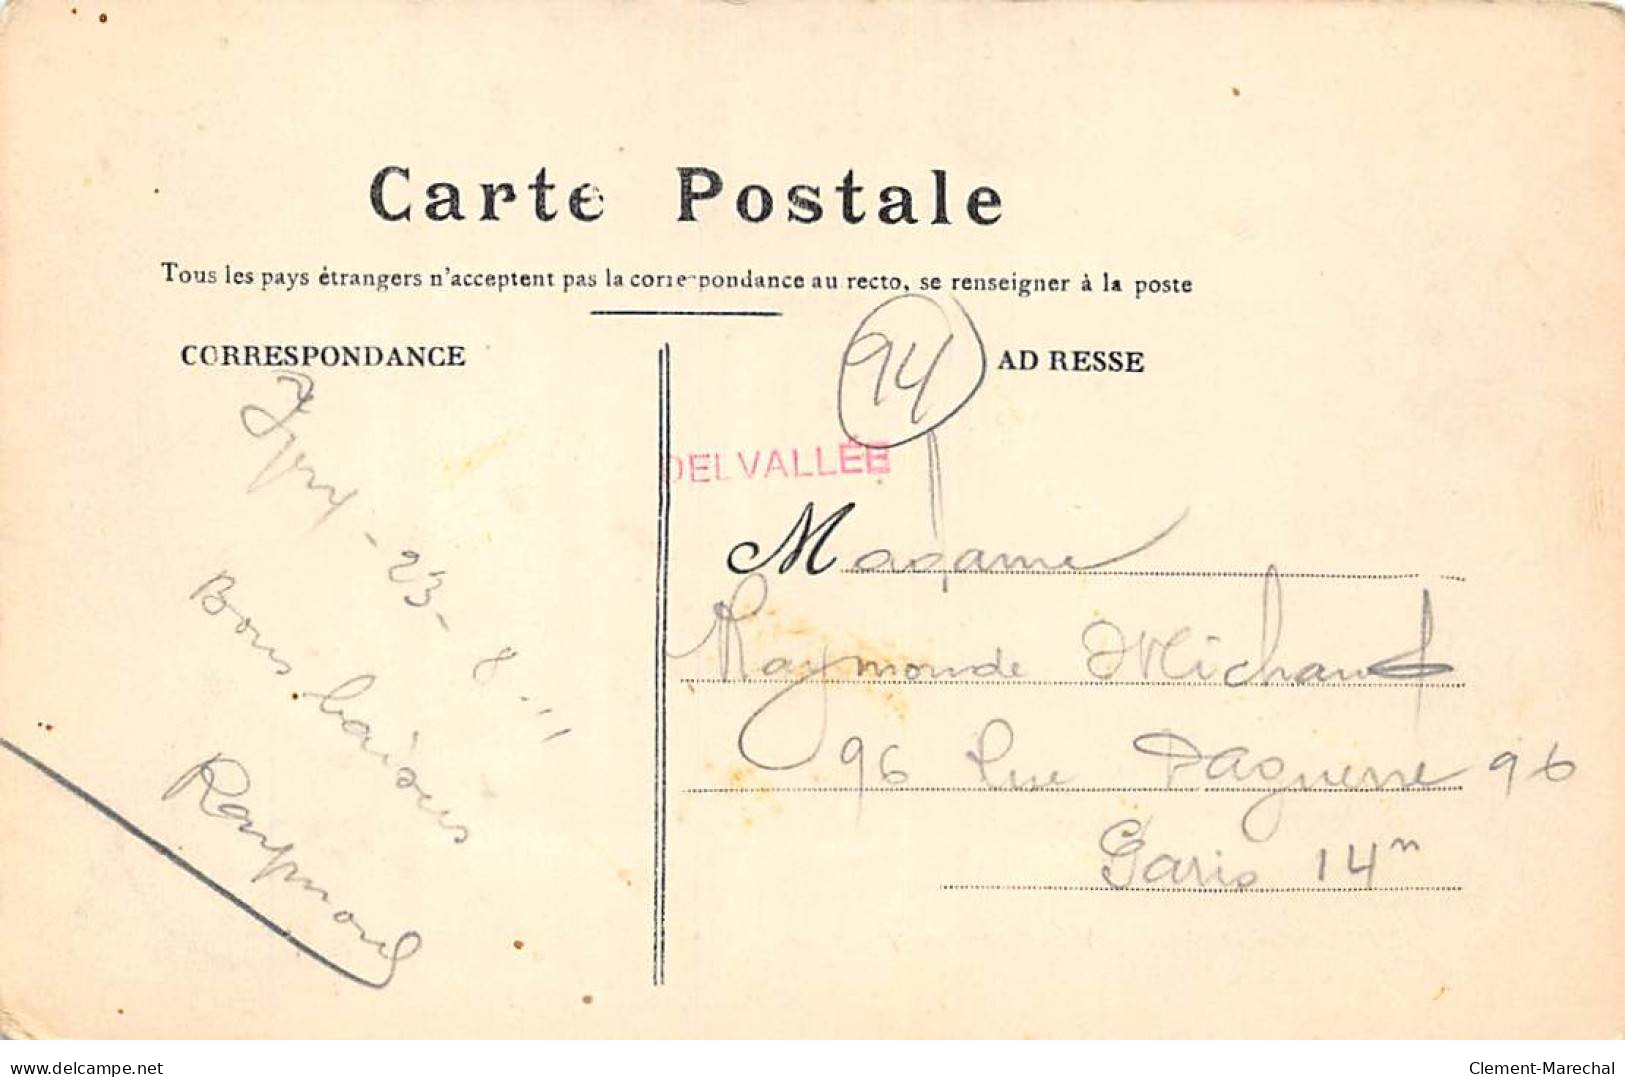 Carte Postale
Tous les pays étrangers n'acceptent pas la correspondance au recto, se renseigner à la poste
CORRESPONDANCE
ADRESSE
94
DELVALLÉE
23-8-11
Bons baisers
Raymond
Madame
Raymonde Michaud
96 Rue Daguerre 96
Paris 14
delcampe.net
Clement-Marechal